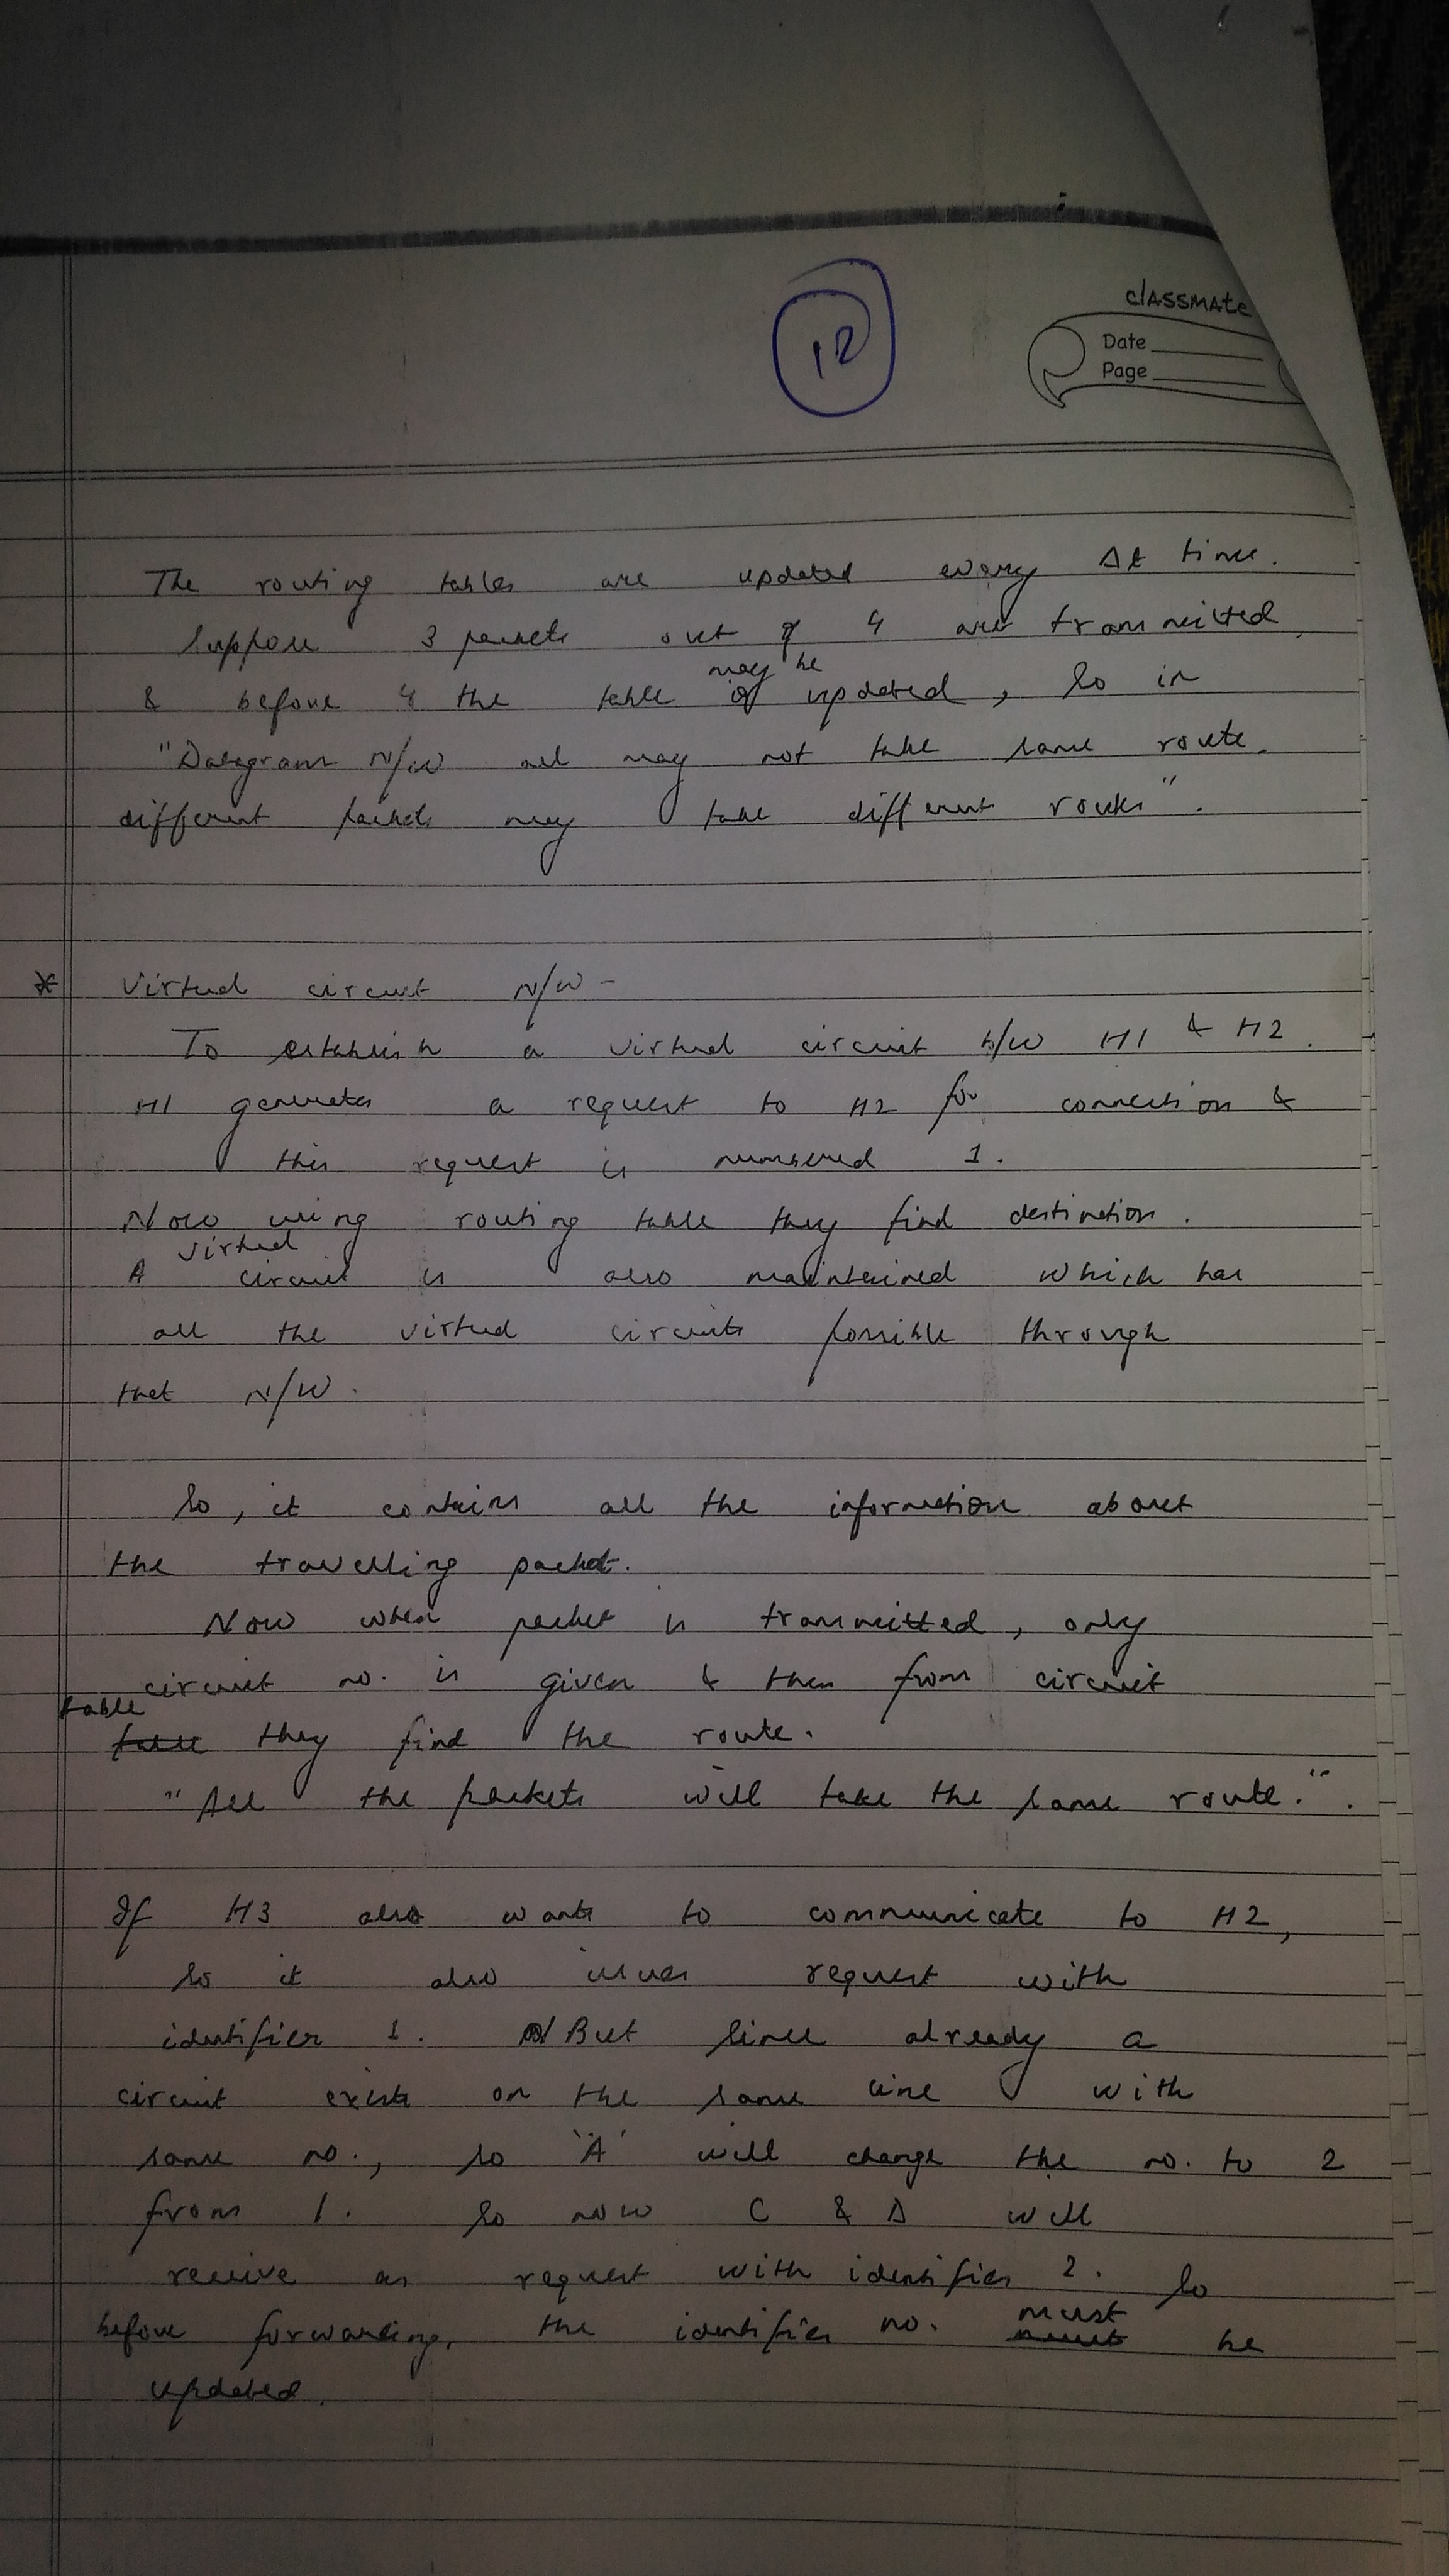 12
classmate
Date
Page
The routing tables are updated every Δt time.
Suppose 3 packets out of 4 are transmitted,
may be
& before 4 the table updated, so in
"Datagram N/W all may not take same route.
different packets may take different routes".
* Virtual circuit N/W -
To establish a virtual circuit b/w H1 & H2.
H1 generates a request to H2 for connection &
this request is numbered 1.
Now using routing table they find destination.
virtual
A circuit is also maintained which has
all the virtual circuits possible through
that N/W.
So, it contains all the information about
the travelling packet.
Now when packet is transmitted, only
circuit no. is given & then from circuit
table
they find the route.
"All the packets will take the same route.".
If H3 also wants to communicate to H2,
so it also issues request with
identifier 1. But since already a
circuit exists on the same line with
same no., so "A" will change the no. to 2
from 1. So now C & D will
receive as request with identifier 2. So
must
before forwarding, the identifier no. be
updated.